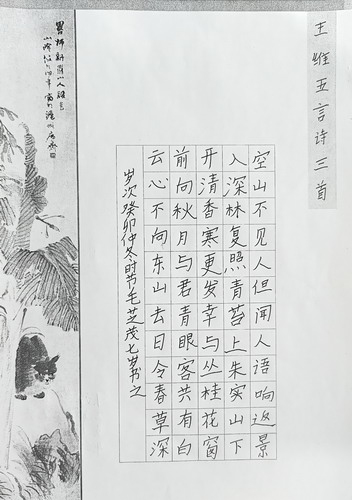 王维五言诗三首
空山不见人但闻人语响返景
入深林复照青苔上朱实山下
开清香寒更发幸与丛桂花窗
前向秋月与君青眼客共有白
云心不向东山去日令春草深
岁次癸卯仲冬时节毛芝茂七岁书之